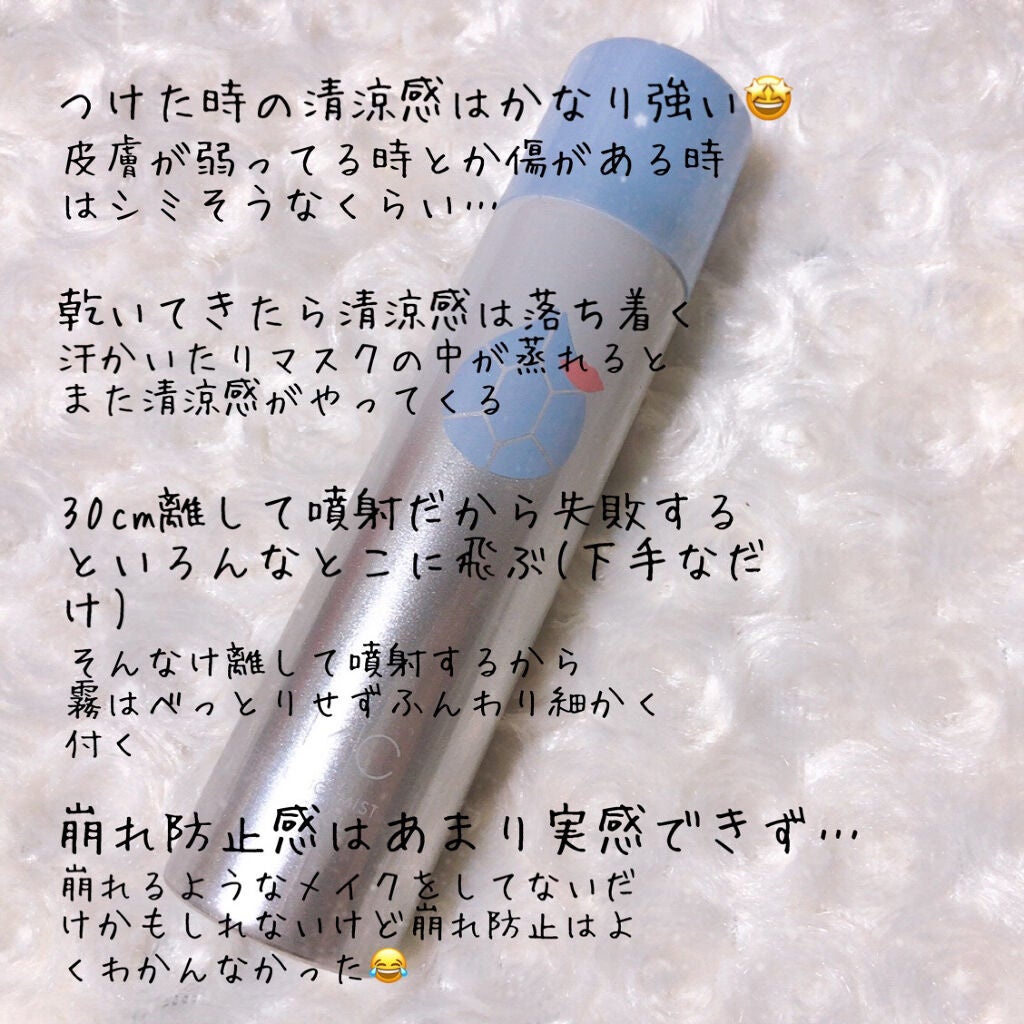 つけた時の清涼感はかなり強い🤩
皮膚が弱ってる時とか傷がある時
はシミそうなくらい…
乾いてきたら清涼感は落ち着く
汗かいたりマスクの中が蒸れると
また清涼感がやってくる
30cm離して噴射だから失敗する
といろんなとこに飛ぶ(下手なだ
け)
そんなけ離して噴射するから
霧はべっとりせずふんわり細かく
付く
崩れ防止感はあまり実感できず…
崩れるようなメイクをしてないだ
けかもしれないけど崩れ防止はよ
くわかんなかった😂